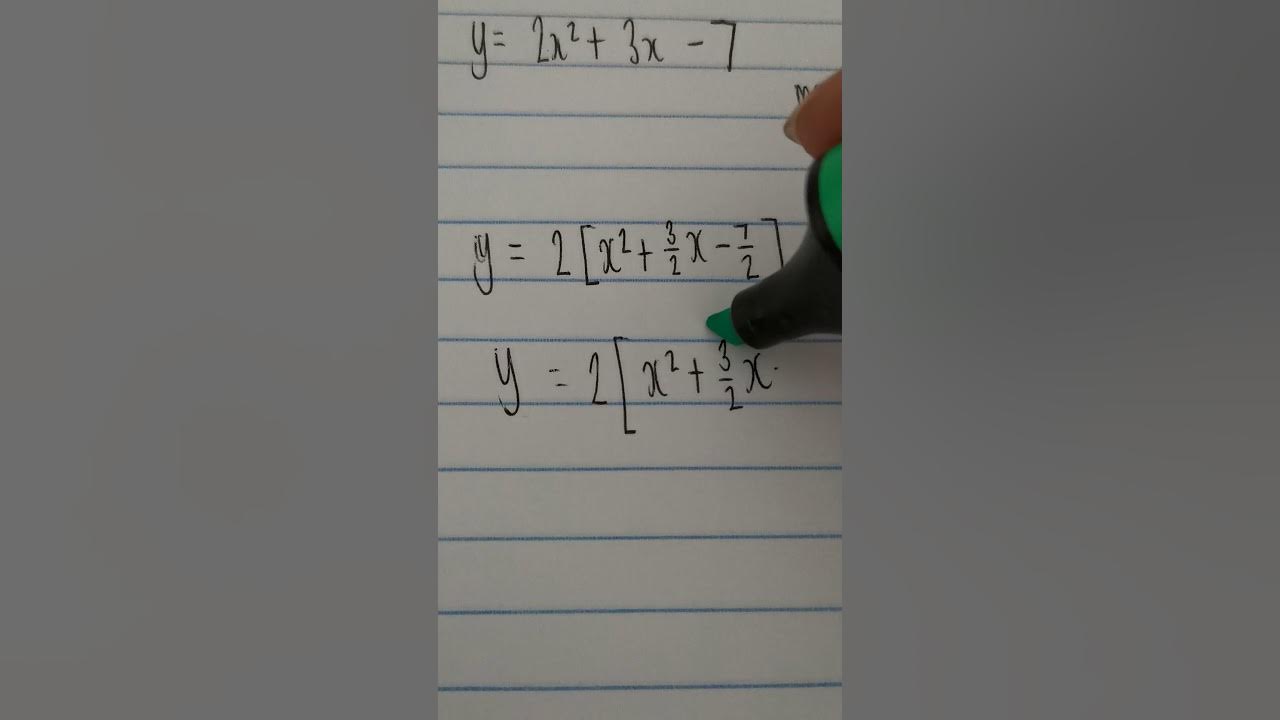 y = 2x² + 3x - 7
y = 2[x² + 3/2 x - 7/2]
y = 2[x² + 3/2 x